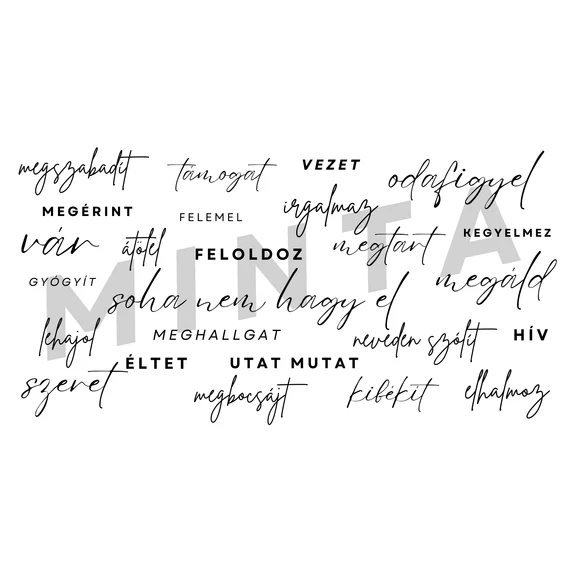 megszabadít támogat VEZET odafigyel
MEGÉRINT FELEMEL irgalmaz
vár átölel FELOLDOZ megtart KEGYELMEZ
GYÓGYÍT soha nem hagy el megáld
lehajol MEGHALLGAT neveden szólít HÍV
ÉLTET UTAT MUTAT
szeret megbocsájt kibékít elhalmoz
MINTA